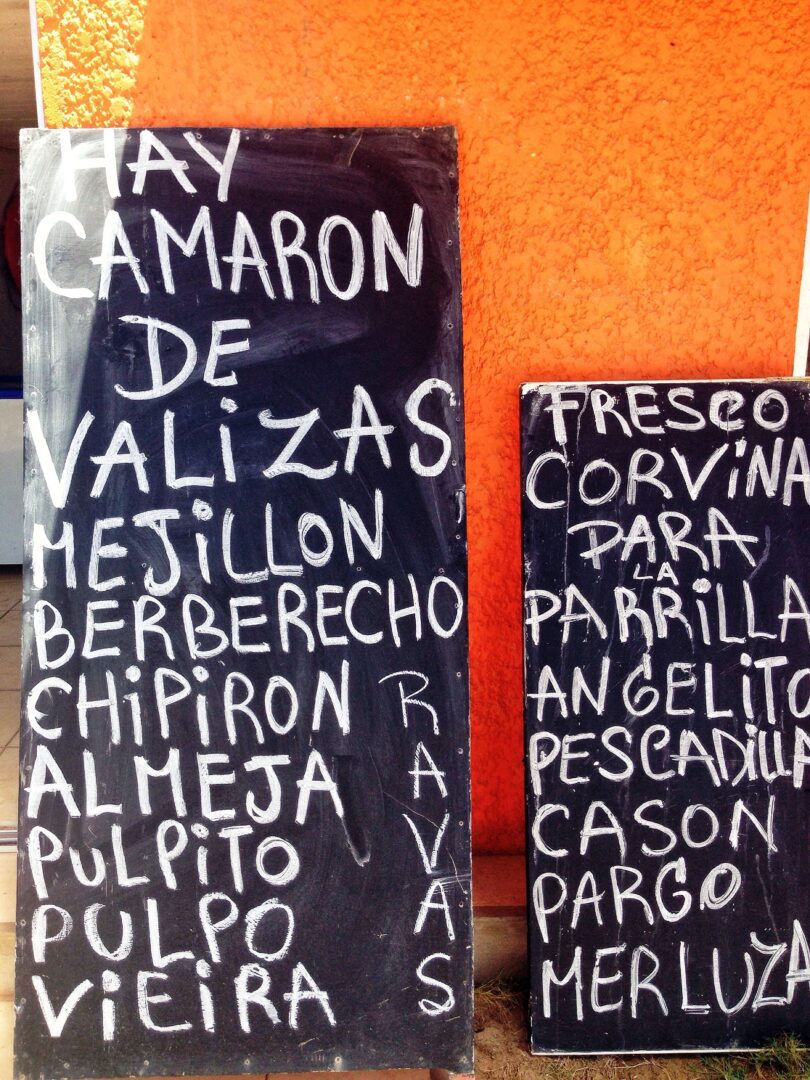 HAY
CAMARON
DE
VALiZAS
MEJiLLON
BERBERECHO
CHiPiRON
ALMEJA
PULPiTO
PULPO
ViEiRA
RAVAS
FRESCO
CORViNA
PARA
LA
PARRiLLA
ANGELiTO
PESCADiLLA
CASON
PARGO
MERLUZA